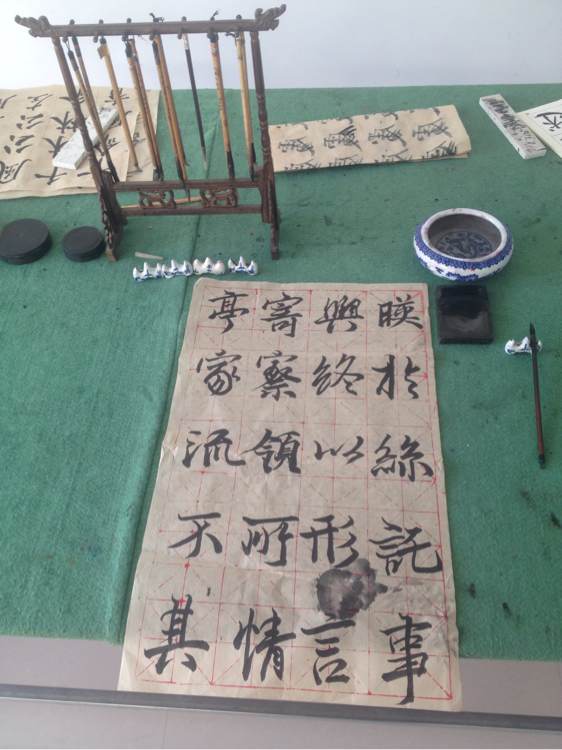 暎於絲託事
興終以形言
寄察領所情
亭家流不其